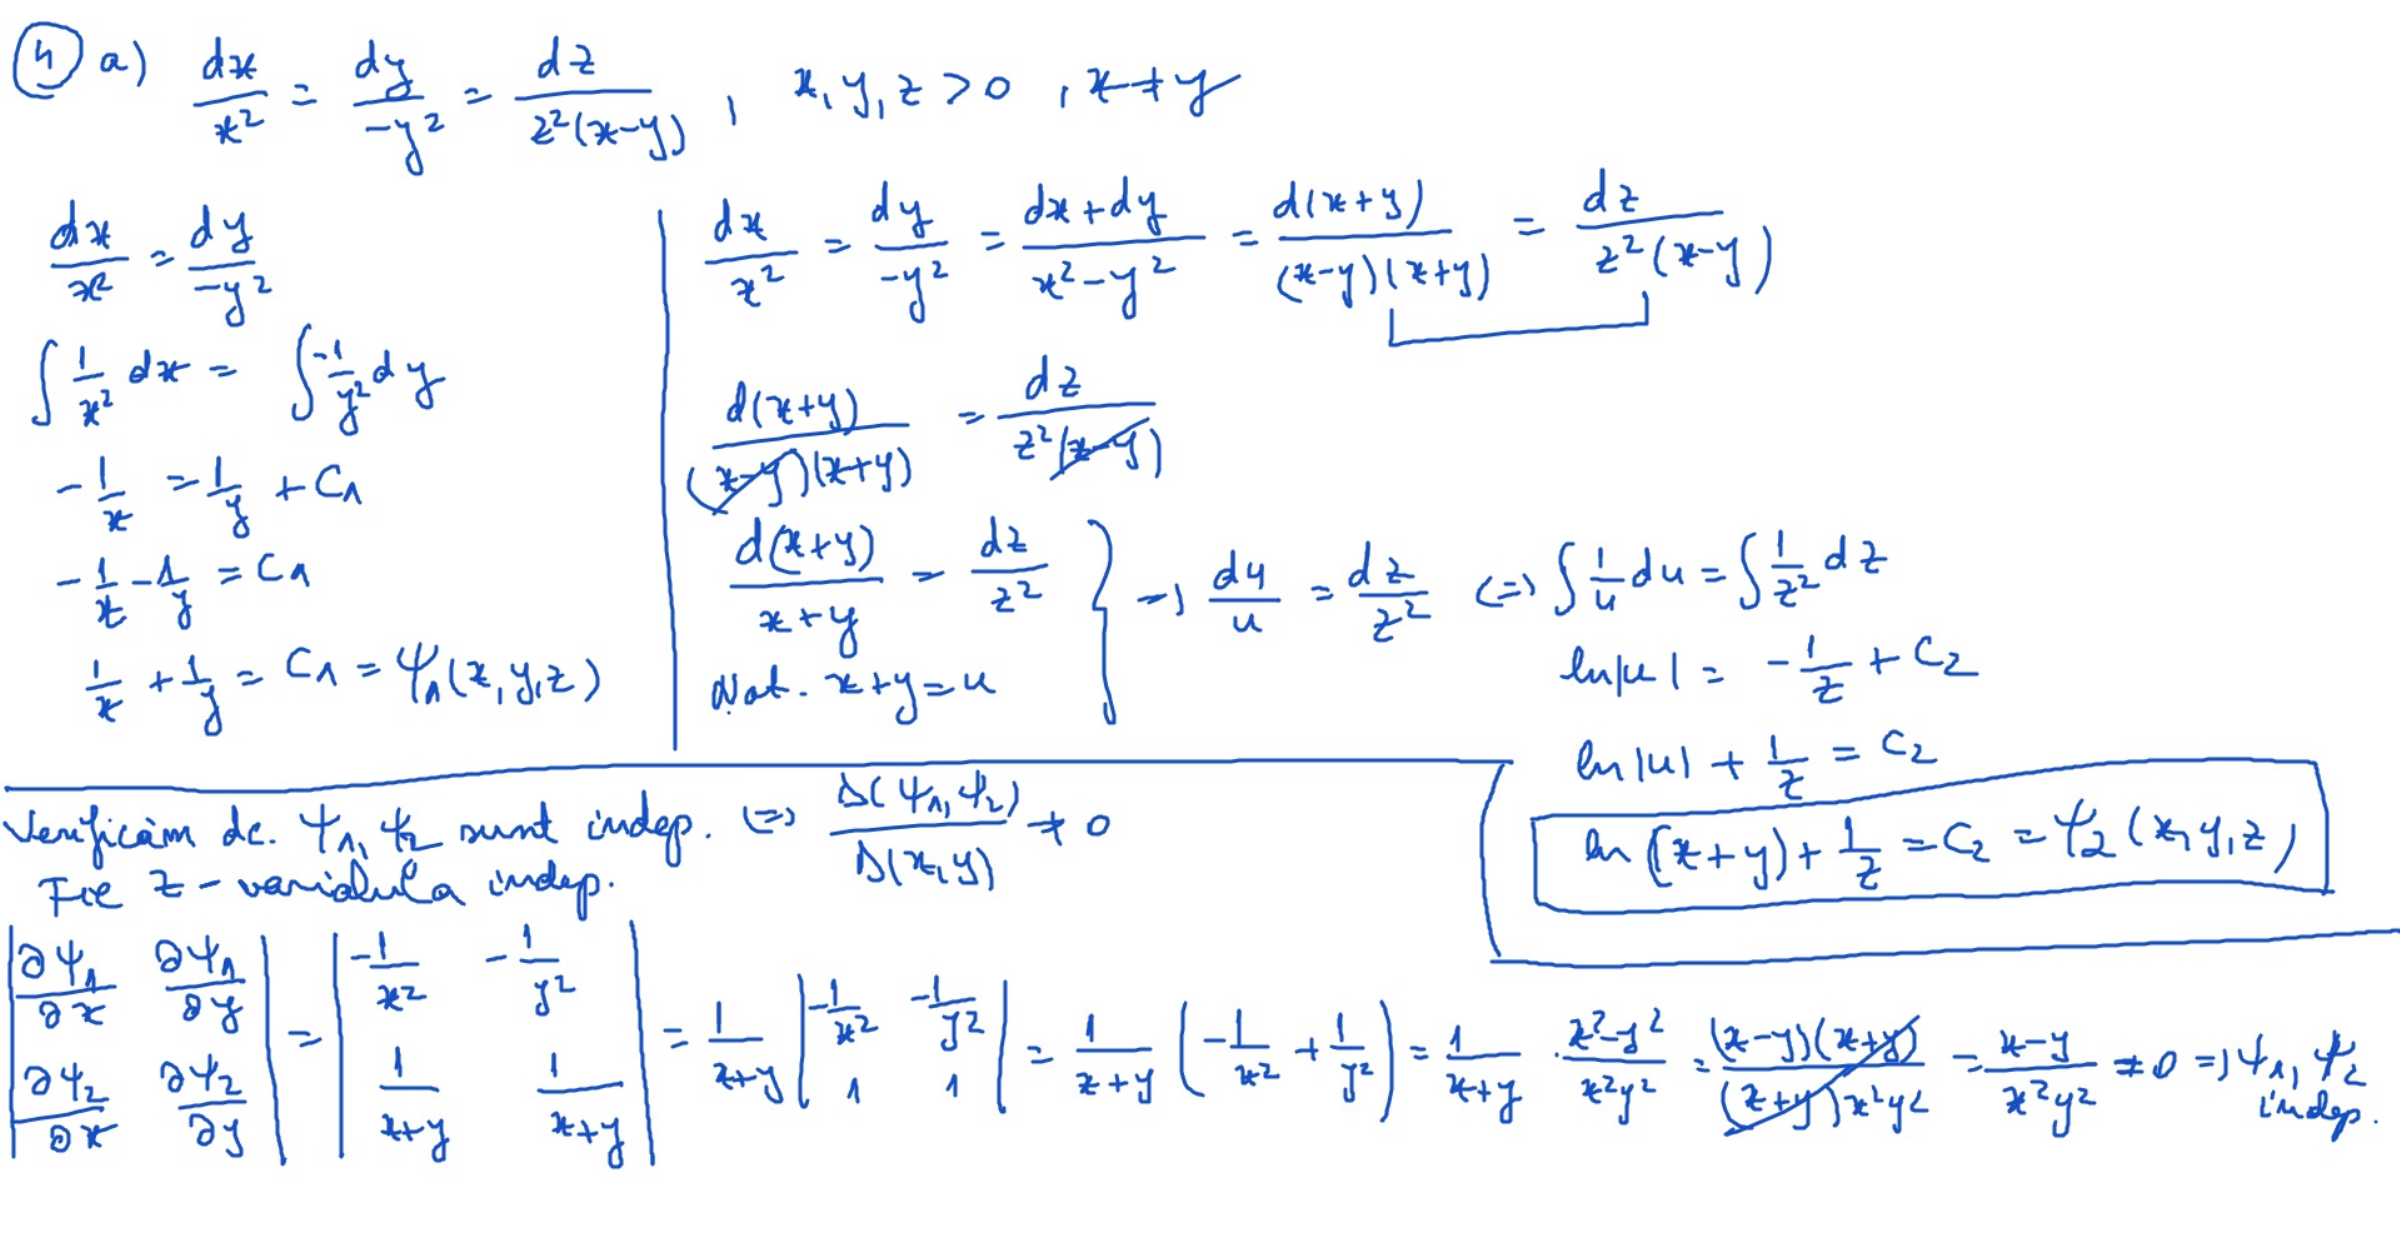 ④ a) dx/x² = dy/-y² = dz/z²(x-y) , x, y, z > 0 , x ≠ y
dx/x² = dy/-y²
∫ 1/x² dx = ∫ -1/y² dy
-1/x = 1/y + C₁
-1/x - 1/y = C₁
1/x + 1/y = C₁ = Ψ₁(x, y, z)
dx/x² = dy/-y² = dx+dy/x²-y² = d(x+y)/(x-y)(x+y) = dz/z²(x-y)
d(x+y)/(x-y)(x+y) = dz/z²(x-y)
d(x+y)/x+y = dz/z²
Not. x+y = u
} => du/u = dz/z² <=> ∫ 1/u du = ∫ 1/z² dz
ln|u| = -1/z + C₂
ln|u| + 1/z = C₂
ln(x+y) + 1/z = C₂ = Ψ₂(x, y, z)
Verificăm dc. Ψ₁, Ψ₂ sunt indep. <=> D(Ψ₁, Ψ₂)/D(x, y) ≠ 0
Fie z - variabila indep.
|∂Ψ₁/∂x ∂Ψ₁/∂y; ∂Ψ₂/∂x ∂Ψ₂/∂y| = |-1/x² -1/y²; 1/x+y 1/x+y| = 1/x+y |-1/x² -1/y²; 1 1| = 1/x+y (-1/x² + 1/y²) = 1/x+y · x²-y²/x²y² = (x-y)(x+y)/(x+y)x²y² = x-y/x²y² ≠ 0 => Ψ₁, Ψ₂ indep.